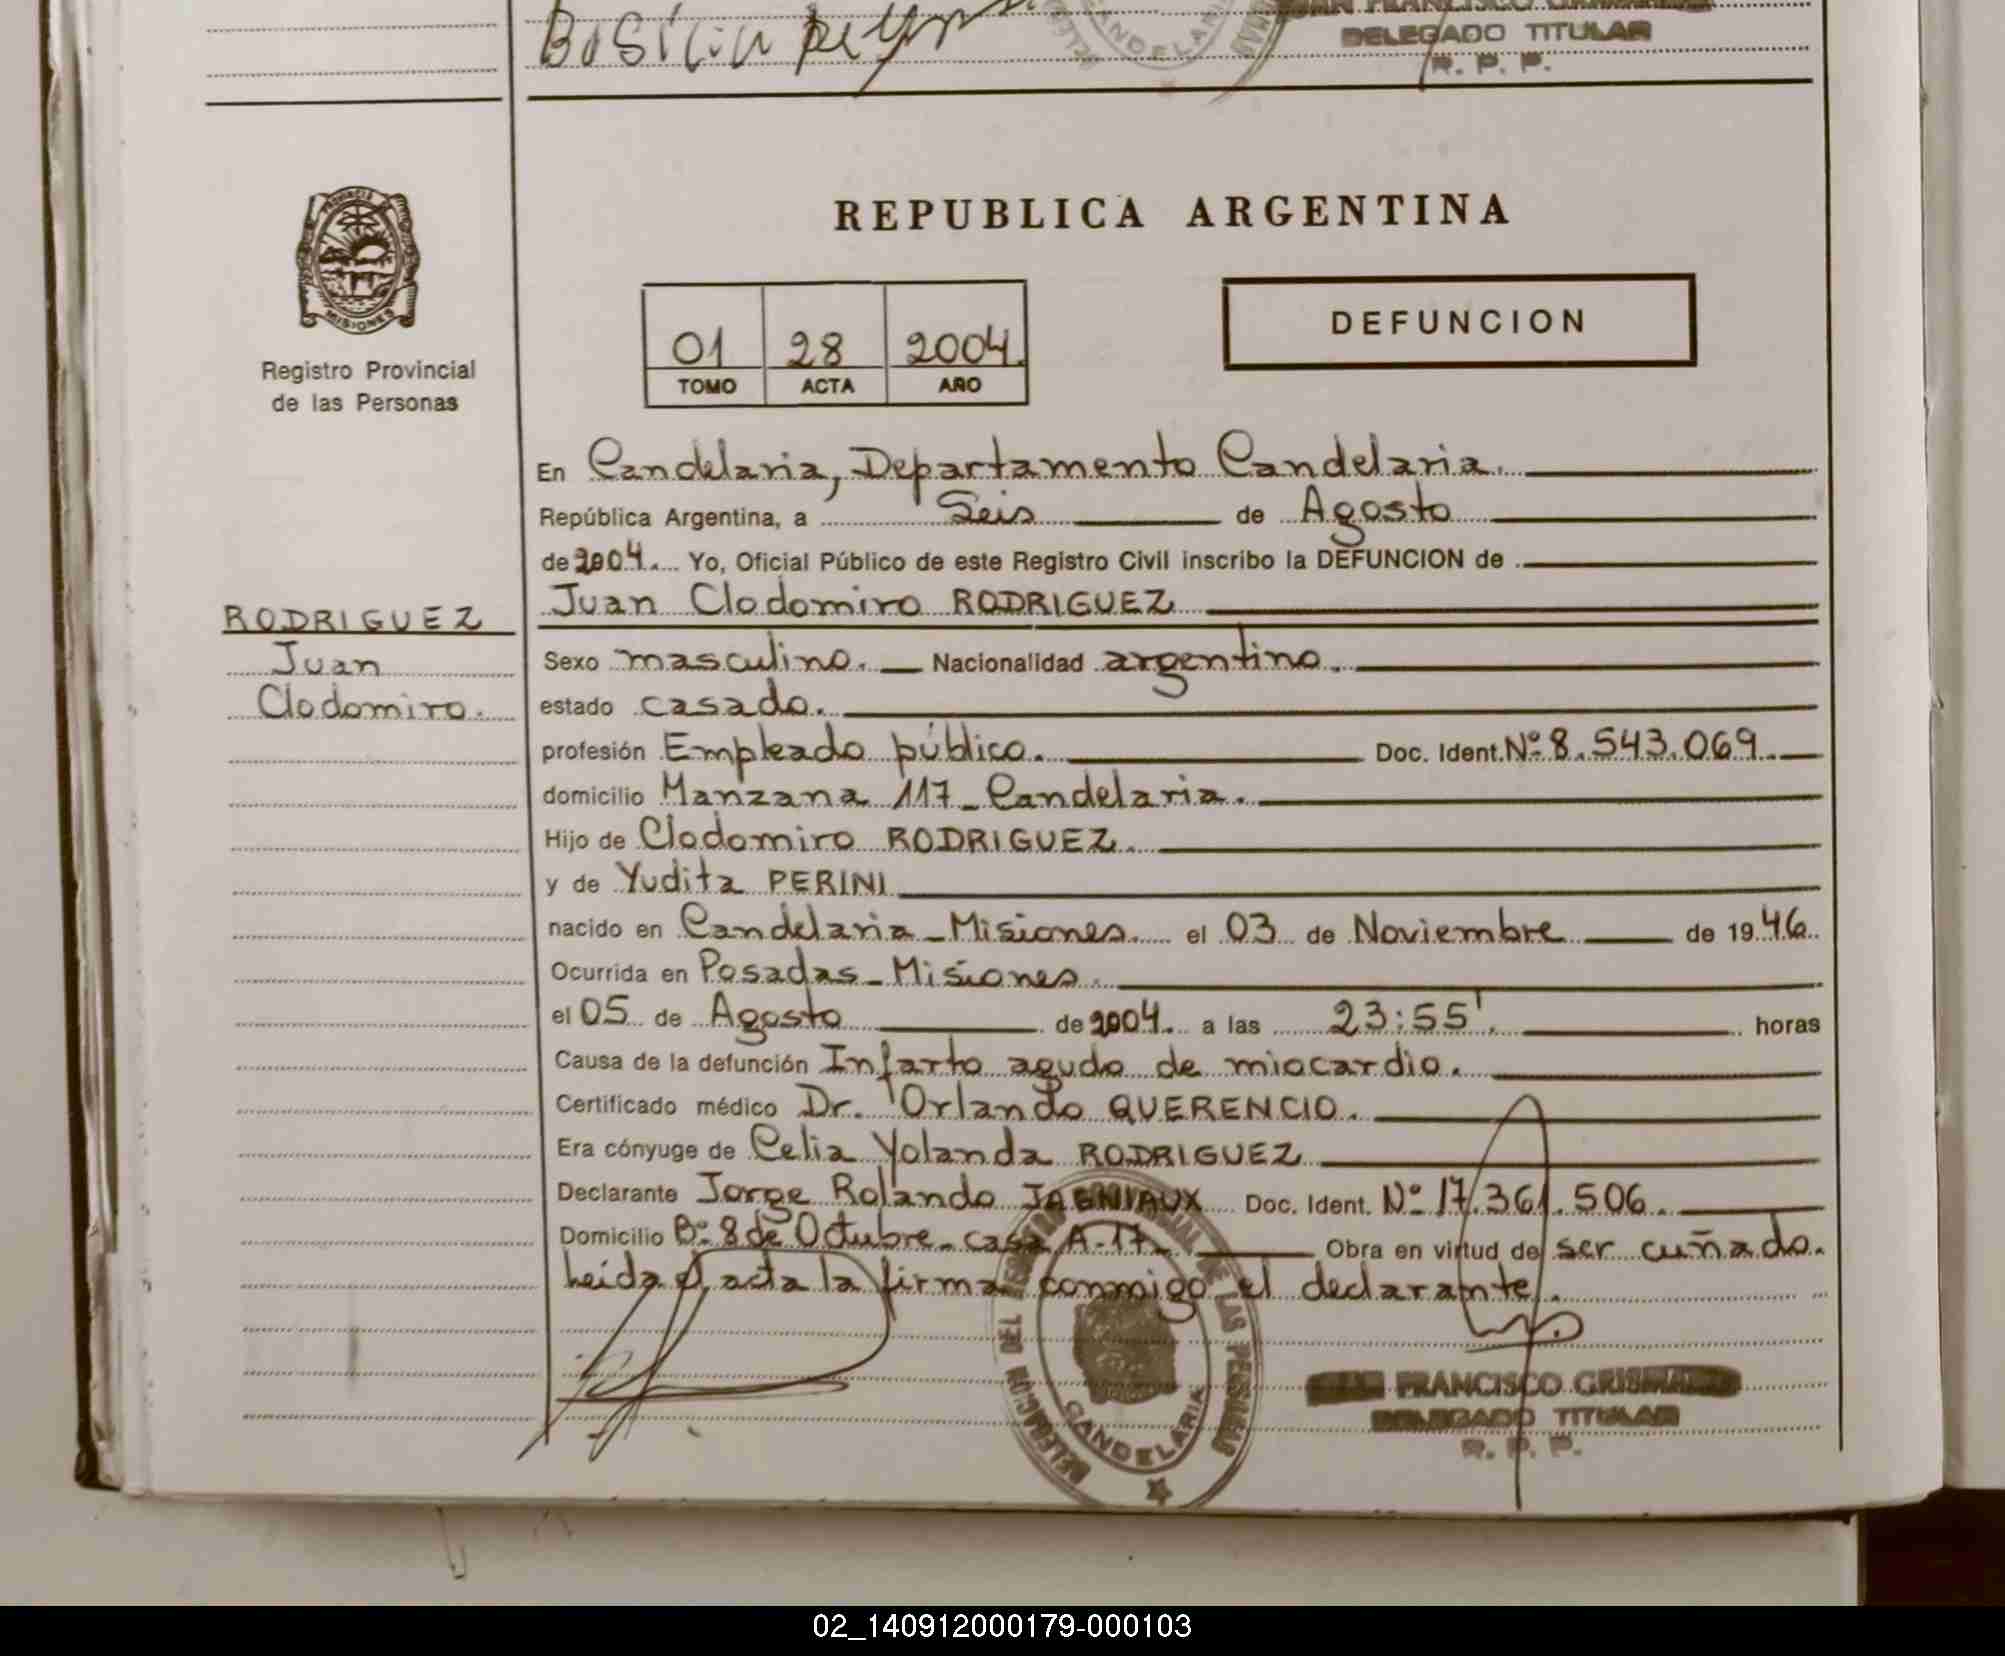 DELEGADO TITULAR
R. P. P.
CANDELARIA
PROVINCIA
MISIONES
Registro Provincial
de las Personas
REPUBLICA ARGENTINA
01 28 2004.
TOMO ACTA AÑO
DEFUNCION
En Candelaria, Departamento Candelaria.
República Argentina, a Seis de Agosto
de 2004. Yo, Oficial Público de este Registro Civil inscribo la DEFUNCION de
Juan Clodomiro RODRIGUEZ
RODRIGUEZ
Juan
Clodomiro.
Sexo masculino. Nacionalidad argentino.
estado casado.
profesión Empleado público. Doc. Ident. Nº 8.543.069.
domicilio Manzana 117 - Candelaria.
Hijo de Clodomiro RODRIGUEZ.
y de Yudita PERINI
nacido en Candelaria - Misiones. el 03 de Noviembre de 1946.
Ocurrida en Posadas - Misiones.
el 05 de Agosto de 2004. a las 23:55'. horas
Causa de la defunción Infarto agudo de miocardio.
Certificado médico Dr. Orlando QUERENCIO.
Era cónyuge de Celia Yolanda RODRIGUEZ
Declarante Jorge Rolando JAGNIAUX Doc. Ident. Nº 17.361.506.
Domicilio Bº 8 de Octubre - casa A-17 - Obra en virtud de ser cuñado.
Leida el acta la firma conmigo el declarante.
DELEGACION DEL REGISTRO PROVINCIAL DE LAS PERSONAS
CANDELARIA
FRANCISCO
DELEGADO TITULAR
R. P. P.
02_140912000179-000103